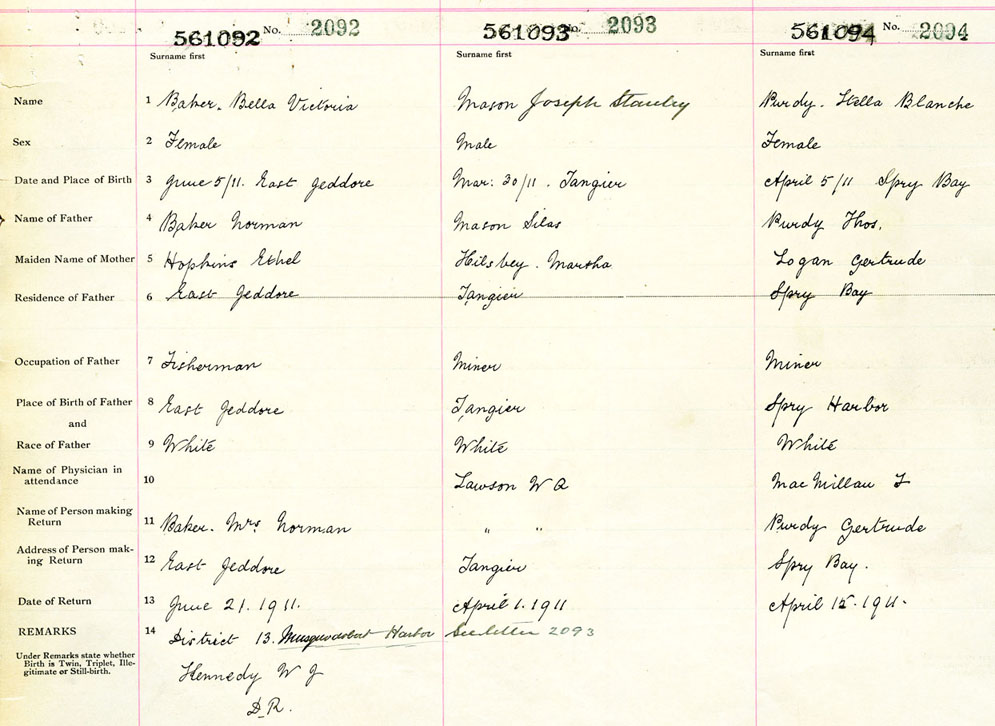 561092 No. 2092 561093 No. 2093 561094 No. 2094
Surname first Surname first Surname first
Name 1 Baker. Bella Victoria Mason Joseph Stanley Purdy. Stella Blanche
Sex 2 Female Male Female
Date and Place of Birth 3 June 5/11. East Jeddore Mar: 30/11. Tangier April 5/11 Spry Bay
Name of Father 4 Baker Norman Mason Silas Purdy Thos.
Maiden Name of Mother 5 Hopkins Ethel Hilsbey. Martha Logan Gertrude
Residence of Father 6 East Jeddore Tangier Spry Bay
Occupation of Father 7 Fisherman Miner Miner
Place of Birth of Father 8 East Jeddore Tangier Spry Harbor
and
Race of Father 9 White White White
Name of Physician in
attendance 10 Lawson W A MacMillan F
Name of Person making
Return 11 Baker. Mrs Norman " " Purdy Gertrude
Address of Person mak-
ing Return 12 East Jeddore Tangier Spry Bay.
Date of Return 13 June 21. 1911. April 1. 1911 April 15. 1911.
REMARKS 14 District 13. Musquodoboit Harbor See letter 2093
Under Remarks state whether
Birth is Twin, Triplet, Ille-
gitimate or Still-birth.
Kennedy W J
D.R.